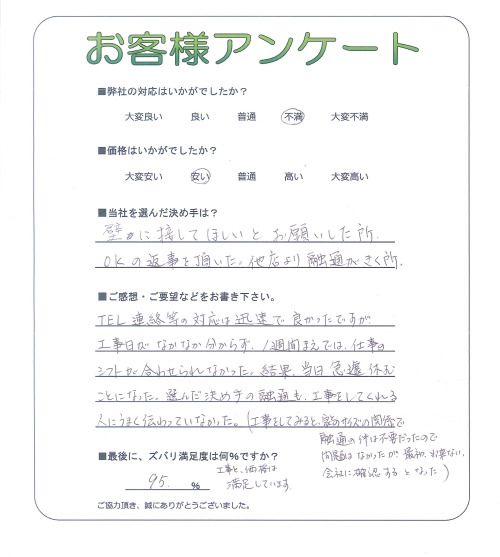 お客様アンケート
■弊社の対応はいかがでしたか？
大変良い 良い 普通 不満 大変不満
■価格はいかがでしたか？
大変安い 安い 普通 高い 大変高い
■当社を選んだ決め手は？
壁に接してほしいとお願いした所、
OKの返事を頂いた。他店より融通がきく所。
■ご感想・ご要望などをお書き下さい。
TEL連絡等の対応は迅速で良かったですが、
工事日がなかなか分からず、1週間まえでは、仕事の
シフトが合わせられなかった。結果、当日急遽休む
ことになった。選んだ決め手の融通も、工事をしてくれる
人にうまく伝わっていなかった。(工事をしてみると、サイズの関係で
融通の件は不要だったので
問題はなかったが、最初、出来ない、
会社に確認するとなった)
■最後に、ズバリ満足度は何％ですか？
95. ％
工事と、価格は
満足しています。
ご協力頂き、誠にありがとうございました。